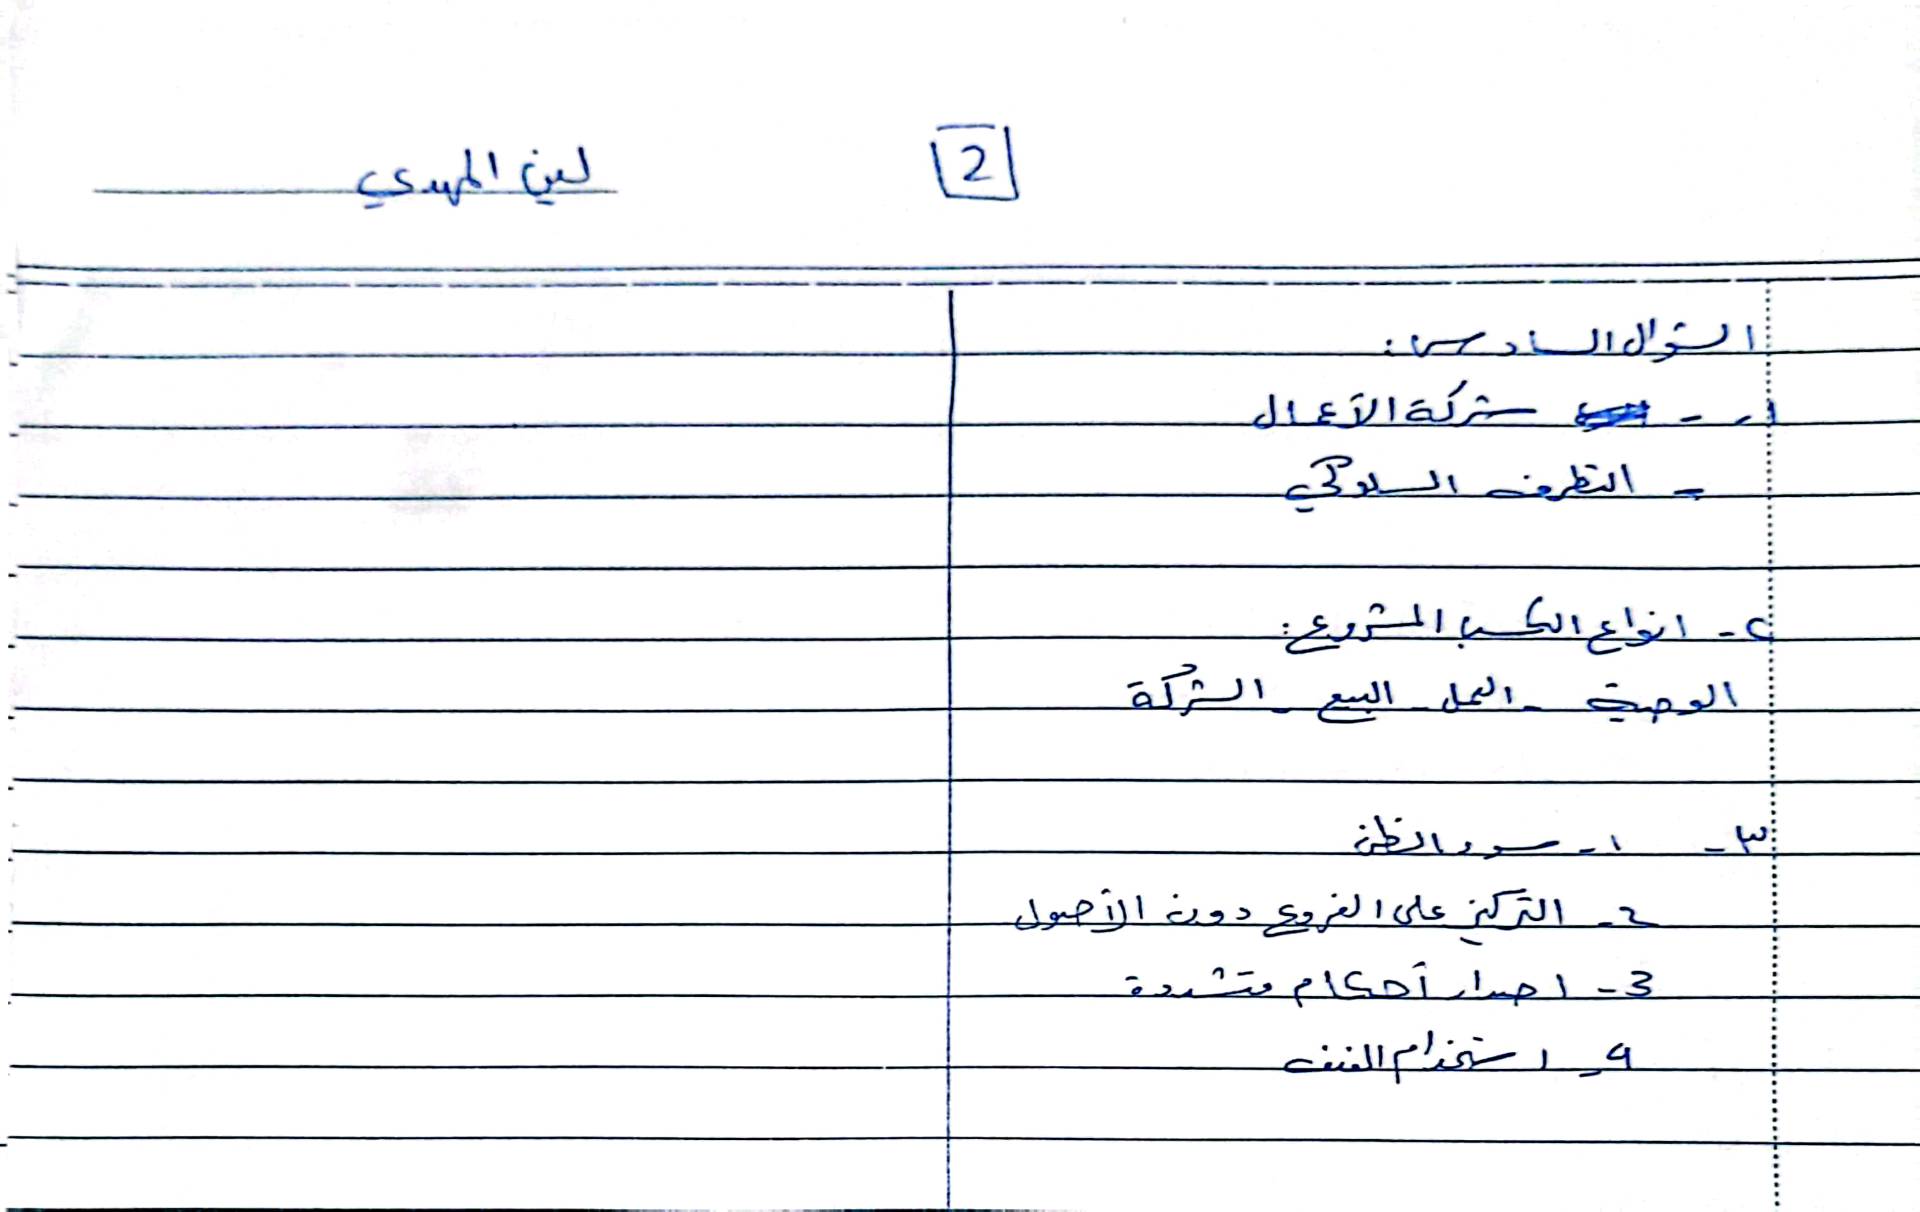 2
لين المهدي
السؤال السادس:
١- - شركة الأعمال
- التطرف السلوكي
٢- انواع الكسب المشروع:
الوصية - العمل - البيع - الشركة
٣- ١- سوء الظن
2- التركيز على الفروع دون الأصول
3- اصدار أحكام متشددة
4- استخدام العنف